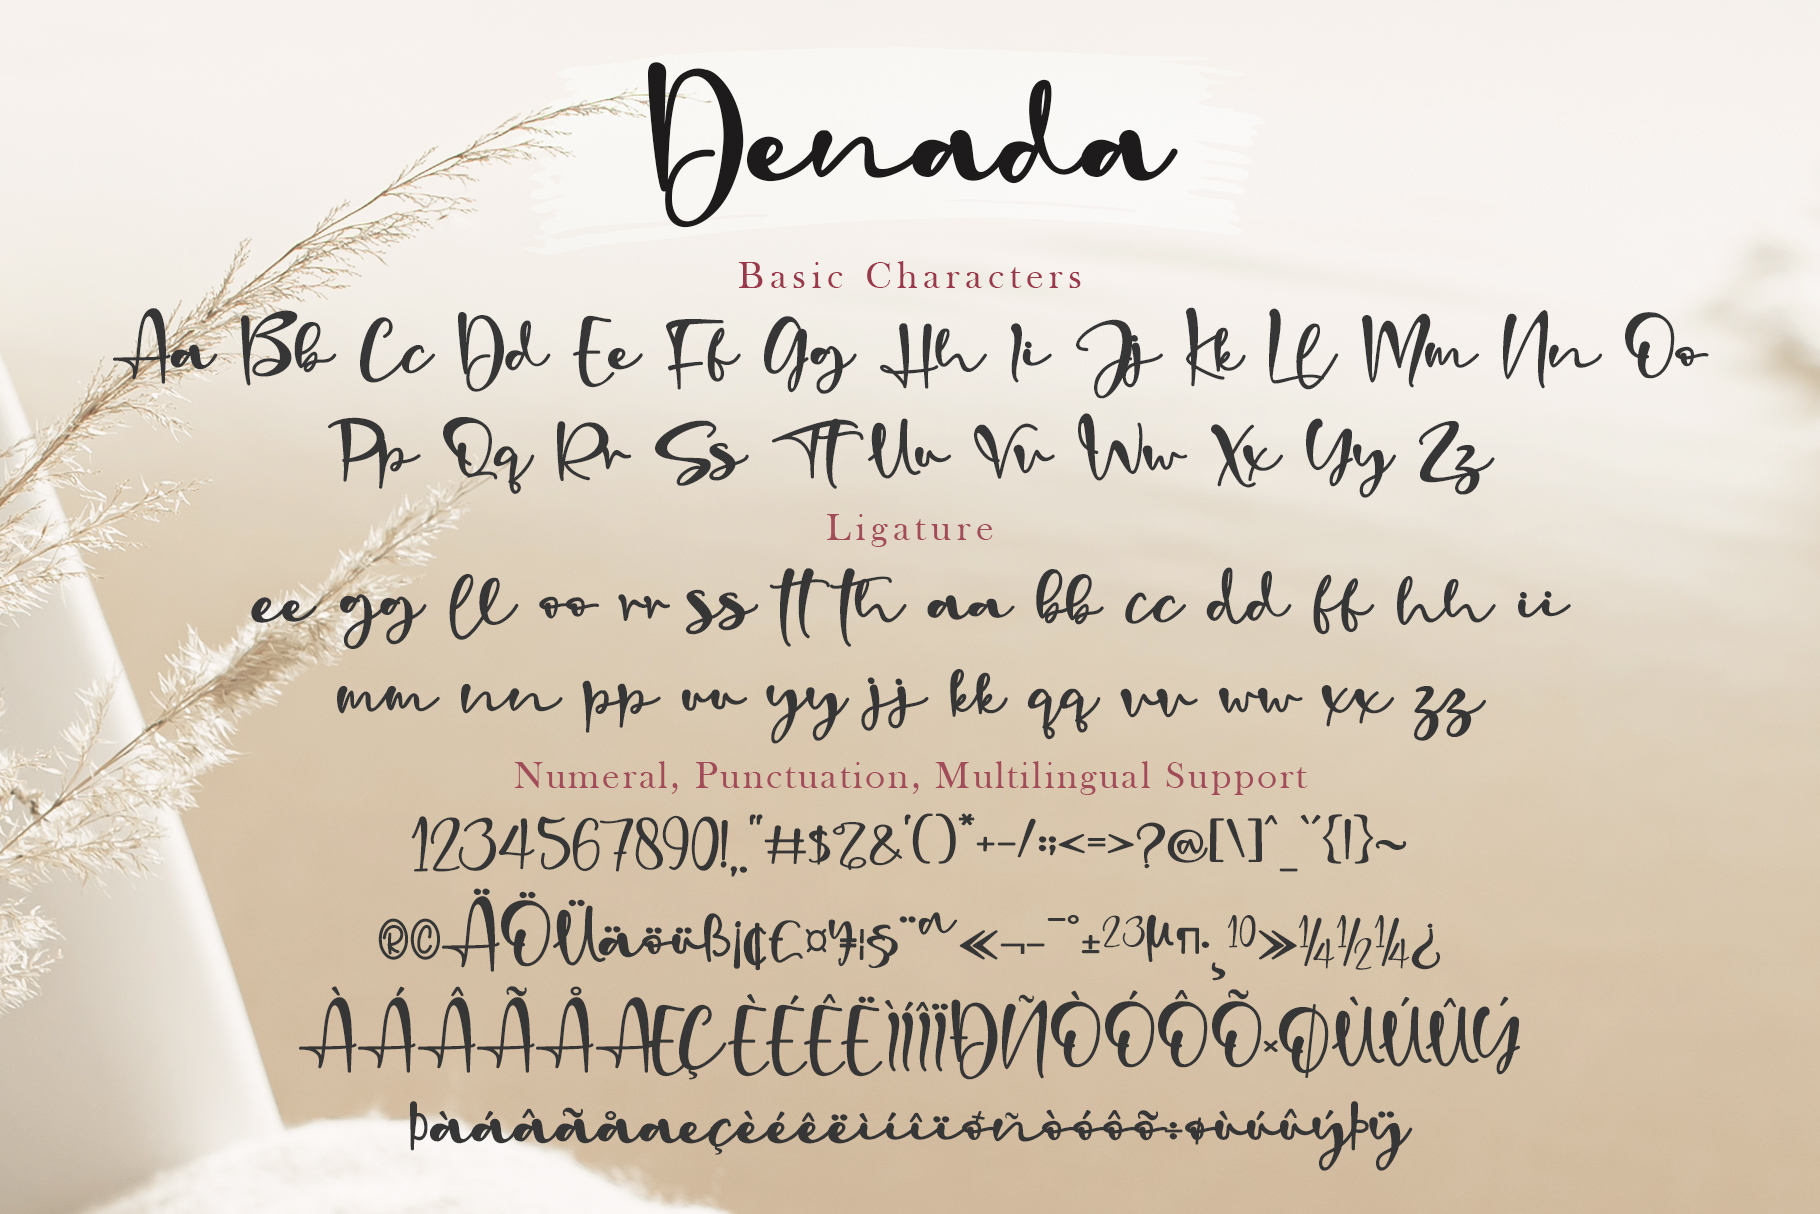 Denada
Basic Characters
Aa Bb Cc Dd Ee Ff Gg Hh Ii Jj Kk Ll Mm Nn Oo
Pp Qq Rr Ss Tt Uu Vv Ww Xx Yy Zz
Ligature
ee gg ll oo rr ss tt th aa bb cc dd ff hh ii
mm nn pp uu yy jj kk qq vv ww xx zz
Numeral, Punctuation, Multilingual Support
1234567890!,."#$%&'()*+-/:;<=>?@[\]^_`´{|}~
®©ÄÖÜäöüß¡¢£¤¥¦§¨ª«¬-¯°±²³µ¶·¸¹º»¼½¼¿
ÀÁÂÃÅÆÇÈÉÊËÌÍÎÏÐÑÒÓÔÕ×ØÙÚÛÝ
Þàáâãåæçèéêëìíîïðñòóôõ÷øùúûýþÿ